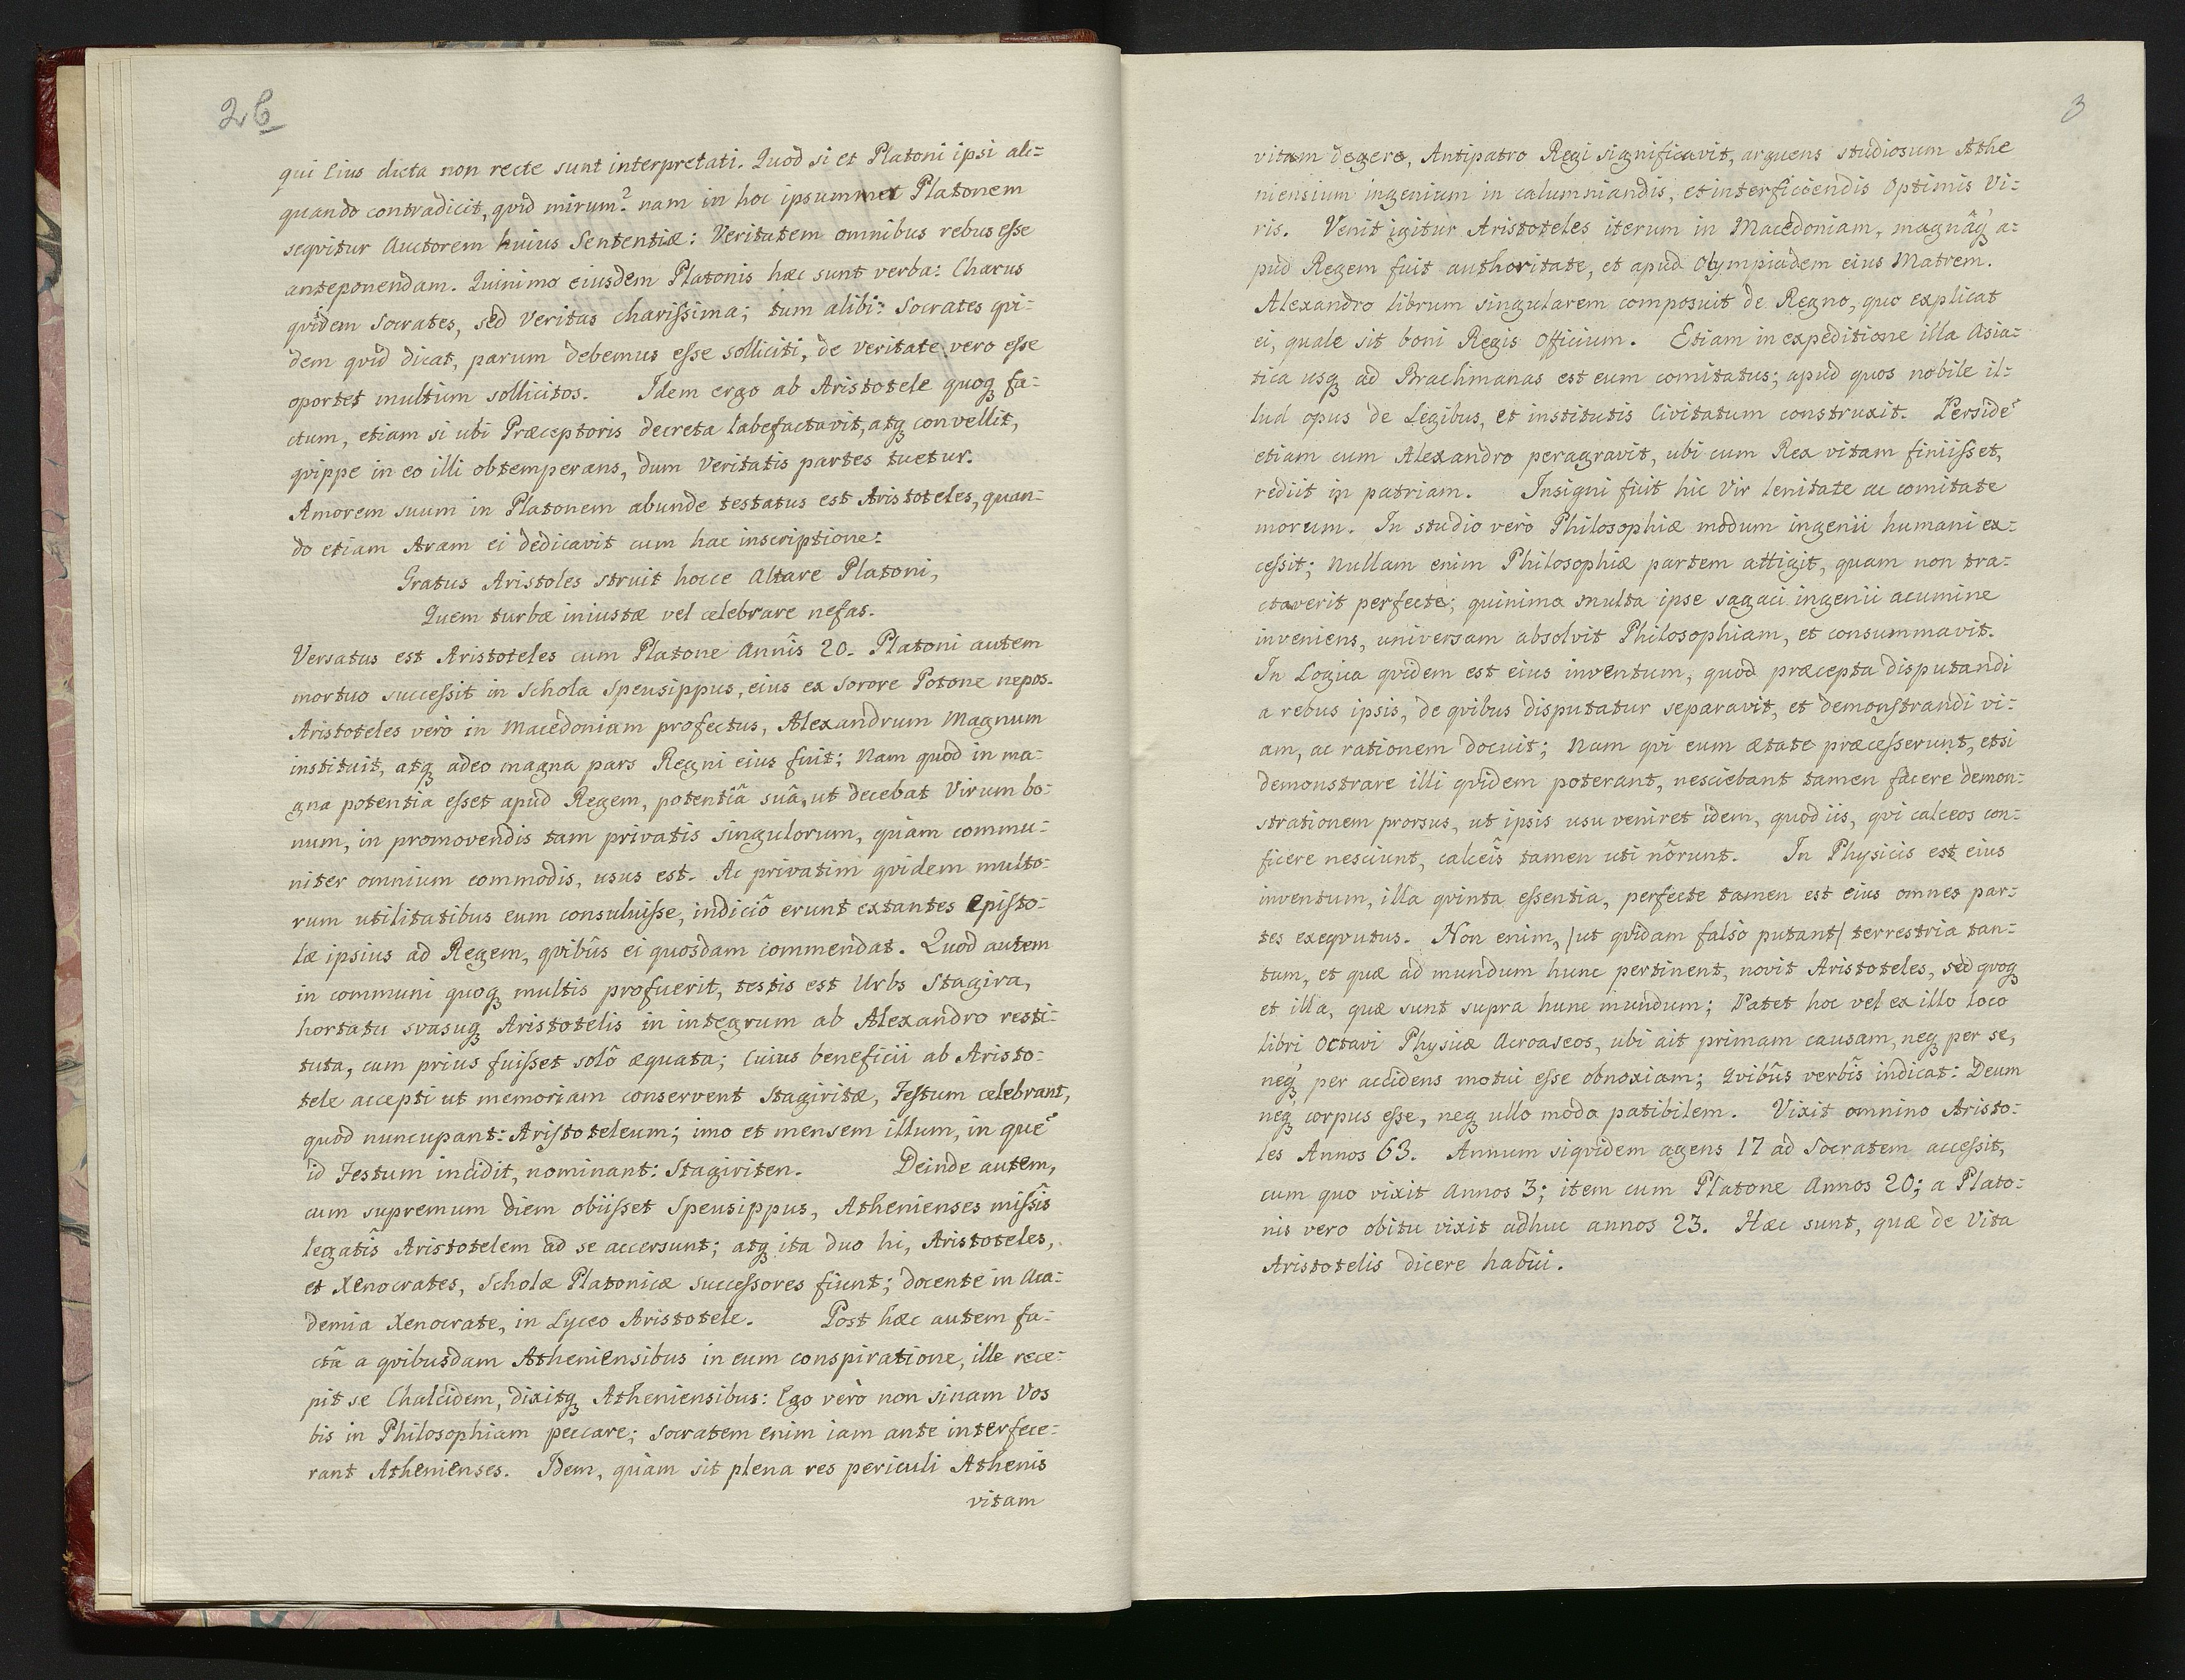 2b
qui Eius dicta non recte sunt interpretati. Quod si et Platoni ipsi ali=
quando contradicit, qvid mirum? nam in hoc ipsummet Platonem
seqvitur Auctorem huius Sententiæ: Veritatem omnibus rebus eſse
anteponendam. Quinimo eiusdem Platonis hæc sunt verba: Charus
qvidem Socrates, sed Veritas chariſsima; tum alibi: Socrates qvi=
dem qvid dicat, parum debemus eſse solliciti, de veritate vero eſse
oportet multum sollicitos. Idem ergo ab Aristotele quoqꝫ fa=
ctum, etiam si ubi Præceptoris decreta labefactavit, atqꝫ convellit,
qvippe in eo illi obtemperans, dum Veritatis partes tuetur.
Amorem suum in Platonem abunde testatus est Aristoteles, quan=
do etiam Aram ei dedicavit cum hac inscriptione:
Gratus Aristoles struit hocce Altare Platoni,
Quem turbæ iniustæ vel celebrare nefas.
Versatus est Aristoteles cum Platone Annîs 20. Platoni autem
mortuo succeſsit in Schola Speusippus, eius ex Sorore Potone nepos.
Aristoteles verò in Macedoniam profectus, Alexandrum Magnum
instituit, atqꝫ adeo magna pars Regni eius fuit; Nam quod in ma=
gna potentiâ eſset apud Regem, potentiâ suâ, ut decebat Virum bo=
num, in promovendis tam privatis singulorum, quàm commu=
niter omnium commodis, usus est. Ac privatim qvidem multo=
rum utilitatibus eum consuluiſse, indiciô erunt extantes Epiſto=
læ ipsius ad Regem, qvibûs ei quosdam commendat. Quod autem
in communi quoqꝫ multis profuerit, testis est Urbs Stagira,
hortatu svasuqꝫ Aristotelis in integrum ab Alexandro resti=
tuta, cum prius fuiſset solô æquata; Cuius beneficii ab Aristo=
tele accepti ut memoriam conservent Stagiritæ, Feſtum celebrant,
quod nuncupant: Ariſtoteleum; imo et mensem illum, in quẽ
id Festum incidit, nominant: Stagiriten. Deinde autem,
cum supremum diem obiiſset Speusippus, Athenienses miſsîs
legatîs Aristotelem ad se accersunt; atqꝫ ita duo hi, Aristoteles,
et Xenocrates, Scholæ Platonicæ succeſsores fiunt; docente in Aca=
demia Xenocrate, in Lyceo Aristotele. Post hæc autem fa=
ctâ a qvibusdam Atheniensibus in eum conspiratione, ille rece=
pit se Chalcidem, dixitqꝫ Atheniensibus: Ego verò non sinam Vos
bis in Philosophiam peccare; Socratem enim iam ante interfece=
rant Athenienses. Idem, quàm sit plena res periculi Athenis
vitam
3
vitam degere, Antipatro Regi significavit, arguens studiosum Athe
niensium ingenium in calumniandis, et interficiendis Optimis Vi=
ris. Venit igitur Aristoteles iterum in Macedoniam, magnâqꝫ a=
pud Regem fuit authoritate, et apud Olympiadem eius Matrem.
Alexandro librum singularem composuit de Regno, quo explicat
ei, quale sit boni Regis Officium. Etiam in expeditione illa Asia=
tica usqꝫ ad Brachmanas est eum comitatus; apud quos nobile il=
lud opus de Legibus, et institutis Civitatum construxit. Persidẽ
etiam cum Alexandro peragravit, ubi cum Rex vitam finiiſset,
rediit in patriam. Insigni fuit hic Vir lenitate ac comitate
morum. In studio verò Philosophiæ modum ingenii humani ex=
ceſsit; Nullam enim Philosophiæ partem attigit, quam non tra=
ctaverit perfecte; quinimo multa ipse sagaci ingenii acumine
inveniens, universam absolvit Philosophiam, et consummavit.
In Logica qvidem est eius inventum, quod præcepta disputandi
a rebus ipsis, de qvibus disputatur separavit, et demonſtrandi vi=
am, ac rationem docuit; Nam qvi eum ætate præceſserunt, etsi
demonstrare illi qvidem poterant, nesciebant tamen facere demon=
strationem prorsus, ut ipsis usu veniret idem, quod iis, qvi calceos con=
ficere nesciunt, calceîs tamen uti nôrunt. In Physicis est eius
inventum, illa qvinta eſsentia, perfecte tamen est eius omnes par=
tes exeqvutus. Non enim, /ut qvidam falsò putant/ terrestria tan=
tum, et quæ ad mundum hunc pertinent, novit Aristoteles, sed qvoqꝫ
et illa, quæ sunt supra hunc mundum; Patet hoc vel ex illo loco
libri Octavi Physicæ Acroaseos, ubi ait primam causam, neqꝫ per se,
neqꝫ per accidens motui eſse obnoxiam; Qvibûs verbîs indicat: Deum
neqꝫ corpus eſse, neqꝫ ullo modo patibilem. Vixit omnino Aristo=
les Annos 63. Annum siqvidem agens 17 ad Socratem acceſsit,
cum quo vixit Annos 3; item cum Platone Annos 20; a Plato=
nis vero obitu vixit adhuc annos 23. Hæc sunt, quæ de Vita
Aristotelis dicere habui.